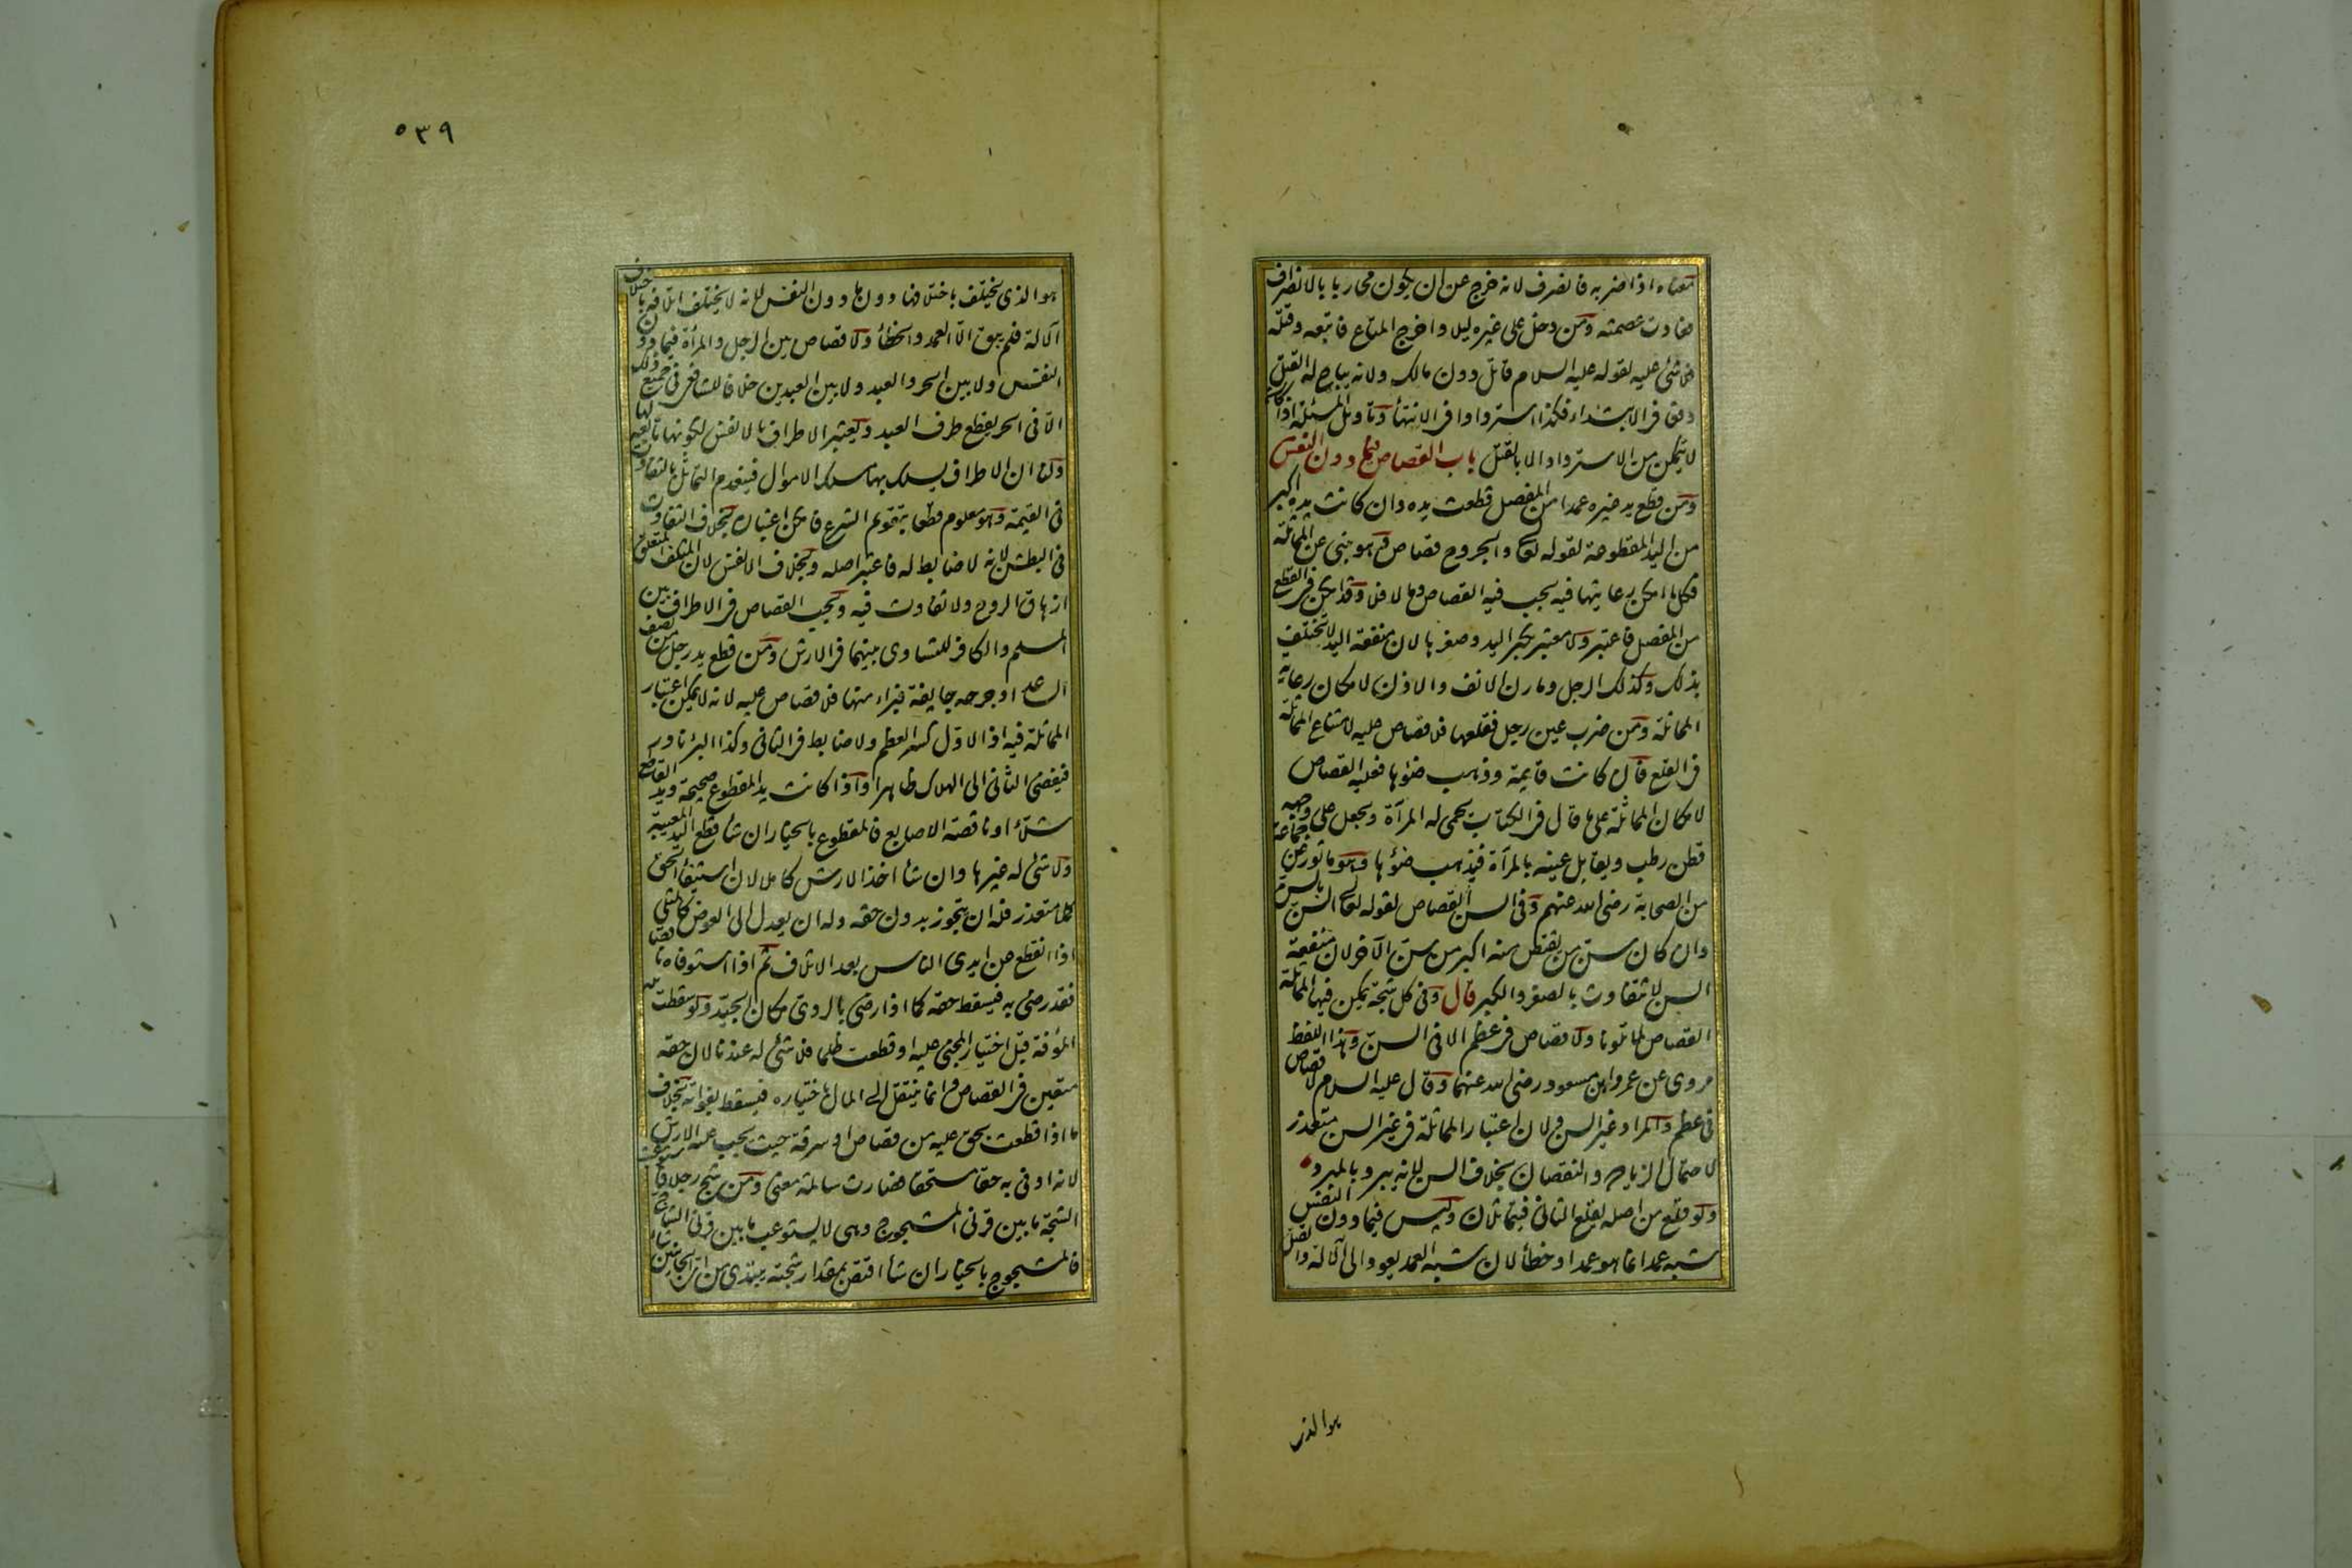 معناه اذا ضربه فانصرف لانه خرج عن ان يكون محاربا بالانصراف
فعادت عصمته ومن دخل على غيره ليلا واخرج المتاع فاتبعه وقتله
فلا شئ عليه لقوله عليه السلام قاتل دون مالك ولانه يباح له القتل
دفعا فى الابتداء فكذا استردادا فى الانتهأ وتاويل المسئلة اذا كان
لا يتمكن من الاسترداد الا بالقتل باب القصاص فيما دون النفس
ومن قطع يد غيره عمدا من المفصل قطعت يده وان كانت يده اكبر
من اليد المقطوعة لقوله تعالى والجروح قصاص وهو ينبى عن المماثلة
فكل ما امكن رعايتها فيه يجب فيه القصاص وما لا فلا وقد امكن فى القطع
من المفصل فاعتبر ولا معتبر بكبر اليد وصغرها لان منفعة اليد لا تختلف
بذلك وكذلك الرجل ومارن الانف والاذن لامكان رعاية
المماثلة ومن ضرب عين رجل فقلعها فلا قصاص عليه لامتناع المماثلة
فى القلع فان كانت قايمة وذهب ضوءها فعليه القصاص
لامكان المماثلة على ما قال فى الكتاب تحمى له المرآة ويجعل على وجهه
قطن رطب ويقابل عينه بالمرآة فيذهب ضوءها وهو ماثور عن جماعة
من الصحابة رضى الله عنهم وفى السن القصاص لقوله تعالى السن بالسن
وان كان سن من يقتص منه اكبر من سن الآخر لان منفعة
السن لا تتفاوت بالصغر والكبر قال وفى كل شجة يمكن فيها المماثلة
القصاص لما تلونا ولا قصاص فى عظم الا فى السن وهذا اللفظ
مروى عن عمر وابن مسعود رضى الله عنهما وقال عليه السلام لا قصاص
فى عظم والمراد غير السن ولان اعتبار المماثلة فى غير السن متعذر
لاحتمال الزيادة والنقصان بخلاف السن لانه يبرد بالمبرد
ولو قلع من اصله يقلع الثانى فيتماثلان وليس فيما دون النفس
شبه عمد انما هو عمد او خطأ لان شبه العمد يعود الى الآلة والقتل
هو الذى
٥٣٩
هو الذى يختلف باختلافها دون ما دون النفس لانه لا يختلف اتلافه باختلاف
الآلة فلم يبق الا العمد والخطأ ولا قصاص بين الرجل والمرأة فيما دون
النفس ولا بين الحر والعبد ولا بين العبدين خلافا للشافعى فى جميع ذلك
الا فى الحر يقطع طرف العبد ويعتبر الاطراف بالانفس لكونها تابعة لها
ولنا ان الاطراف يسلك بها مسلك الاموال فينعدم التماثل بالتفاوت
فى القيمة وهو معلوم قطعا بتقويم الشرع فامكن اعتباره بخلاف التفاوت
فى البطش لانه لا ضابط له فاعتبر اصله وبخلاف الانفس لان المتلف المتعلق
ازهاق الروح ولا تفاوت فيه ويجب القصاص فى الاطراف بين
المسلم والكافر للتساوى بينهما فى الارش ومن قطع يد رجل من نصف
الساعد او جرحه جايفة فبراء منها فلا قصاص عليه لانه لا يمكن اعتبار
المماثلة فيه اذ الاول كسر العظم ولا ضابط فى الثانى وكذا البرء نادر
فيفضى الثانى الى الهلاك ظاهرا واذا كانت يد المقطوع صحيحة ويد القاطع
شلاء او ناقصة الاصابع فالمقطوع بالخيار ان شأ قطع اليد المعيبة
ولا شئ له غيرها وان شأ اخذ الارش كاملا لان استيفأ الحق
كملا متعذر فله ان يتجوز بدون حقه وله ان يعدل الى العوض كالمثلى
اذا انقطع عن ايدى الناس بعد الاتلاف ثم اذا استوفاه ناقصا
فقد رضى به فيسقط حقه كما اذا رضى بالردى مكان الجيد ولو سقطت
المؤفة قبل اختيار المجنى عليه او قطعت ظلما فلا شئ له عندنا لان حقه
متعين فى القصاص وانما ينتقل الى المال باختياره فيسقط بفواته بخلاف
ما اذا قطعت بحق عليه من قصاص او سرقة حيث يجب عليه الارش
لانه اوفى به حقا مستحقا فصارت سالمة له معنى ومن شج رجلا فاستوعبت
الشجة ما بين قرنى المشجوج وهى لا يستوعب ما بين قرنى الشاج
فالمشجوج بالخيار ان شأ اقتص بمقدار شجته يبتدى من اى الجانبين شأ